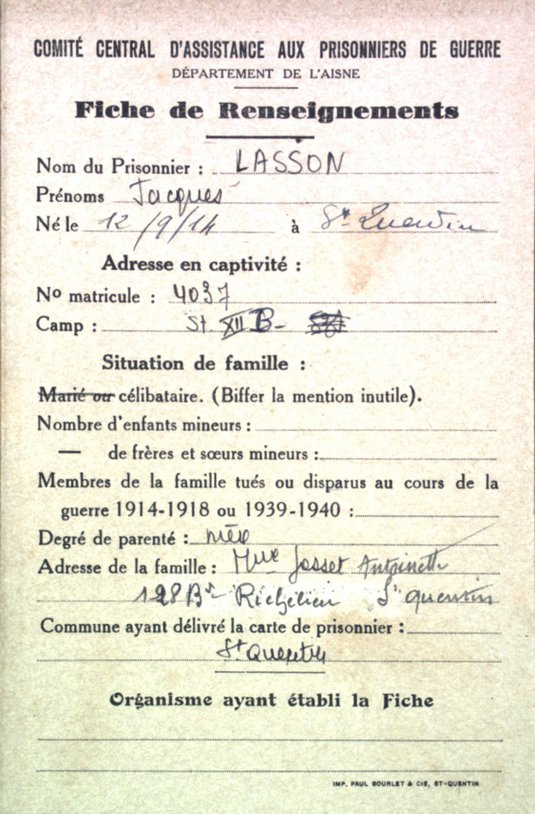 COMITÉ CENTRAL D'ASSISTANCE AUX PRISONNIERS DE GUERRE
DÉPARTEMENT DE L'AISNE
Fiche de Renseignements
Nom du Prisonnier : LASSON
Prénoms Jacques
Né le 12/9/14 à St Quentin
Adresse en captivité :
No matricule : 4037
Camp : St. XII B-
Situation de famille :
Marié ou célibataire. (Biffer la mention inutile).
Nombre d'enfants mineurs :
— de frères et sœurs mineurs :
Membres de la famille tués ou disparus au cours de la
guerre 1914-1918 ou 1939-1940 :
Degré de parenté : mère
Adresse de la famille : Mme Josset Antoinette
128 Bd Richelieu St quentin
Commune ayant délivré la carte de prisonnier :
St Quentin
Organisme ayant établi la Fiche
IMP. PAUL BOURLET & CIE, ST-QUENTIN